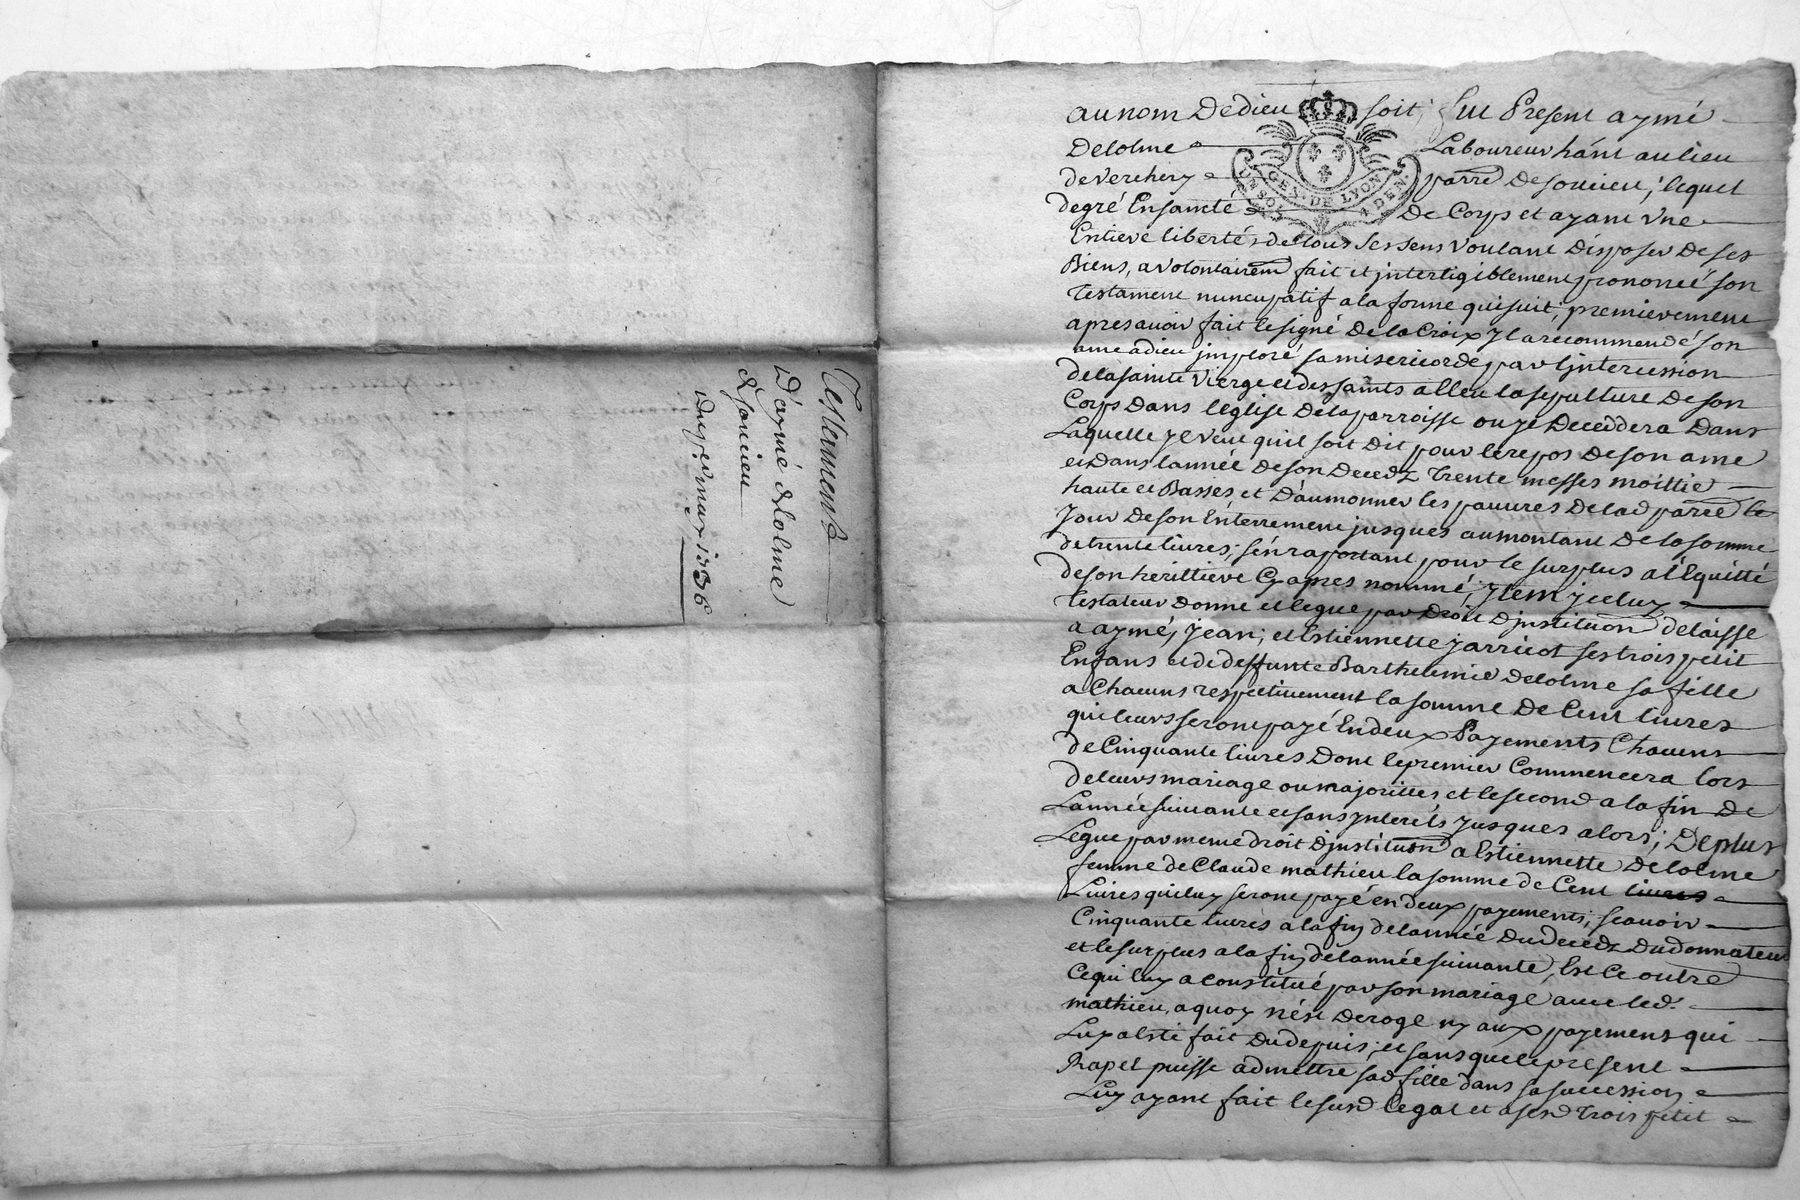 Testament
D'aymé delolme
de soucieu
du 9e. may 1736
au nom de dieu soit; fut Present aymé
Delolme Laboureur hánt au lieu
de verchery parre de soucieu; lequel
de gré En santé de Corps et ayant Vne
Entiere libertés de tous ses sens voulant disposer de ses
Biens, a volontairem fait et jnteligiblement prononcé son
Testament nuncupatif a la forme qui suit; premierement
apres avoir fait le signé de la Croix Jl a recommendé son
ame a dieu jmploré sa misericorde par l'jntercession
de la sainte vierge et des saints a Esleu la sepulture de son
Corps dans l'eglise de la parroisse ou je deceddera dans
Laquelle je veut qu'il soit dit pour le repos de son ame
et dans l'année de son decedz trente messes moittie
haute et Basses et d'aumonner les pauures de lad parre le
Jour de son Enterrement jusques au montant de la somme
de trente liures; s'en raportant pour le surplus a l'Equitté
de son herittiere Cy apres nommé; jtem jceluy
testateur donne et legue par droit d'jnstitution délaisse
a aymé, jean, et Estiennette jarricot ses trois petit
Enfans et de deffunte Barthelemie delolme sa fille
a Chacuns respectiuement la somme de Cent liures
qui leurs seront payé En deux Payements Chacuns
de Cinquante liures dont le premier Commencera lors
de leurs mariage ou majorittés et le second a la fin de
L'année suiuante et sans jnterêts jusques alors; de plus
Legue par meme droit d'jnstitution a Estiennette delolme
femme de Claude mathieu la somme de Cent liures
Liures qui luy seront payé en deux payements; scauoir
Cinquante liures a la fin de l'année du decedz du donnateur
et le surplus a la fin de l'année suiuante, Est Ce outre
Ce qui luy a constitué par son mariage auec led.
mathieu, a quoy n'est deroge ny aux payemens qui
Luy a Esté fait du depuis; et sans que le present
Rapel puisse admettre sad fille dans sa succession
Luy ayant fait le susd legat et a sesd trois petit
UN SOL
GEN. DE LYON
4 DEN.